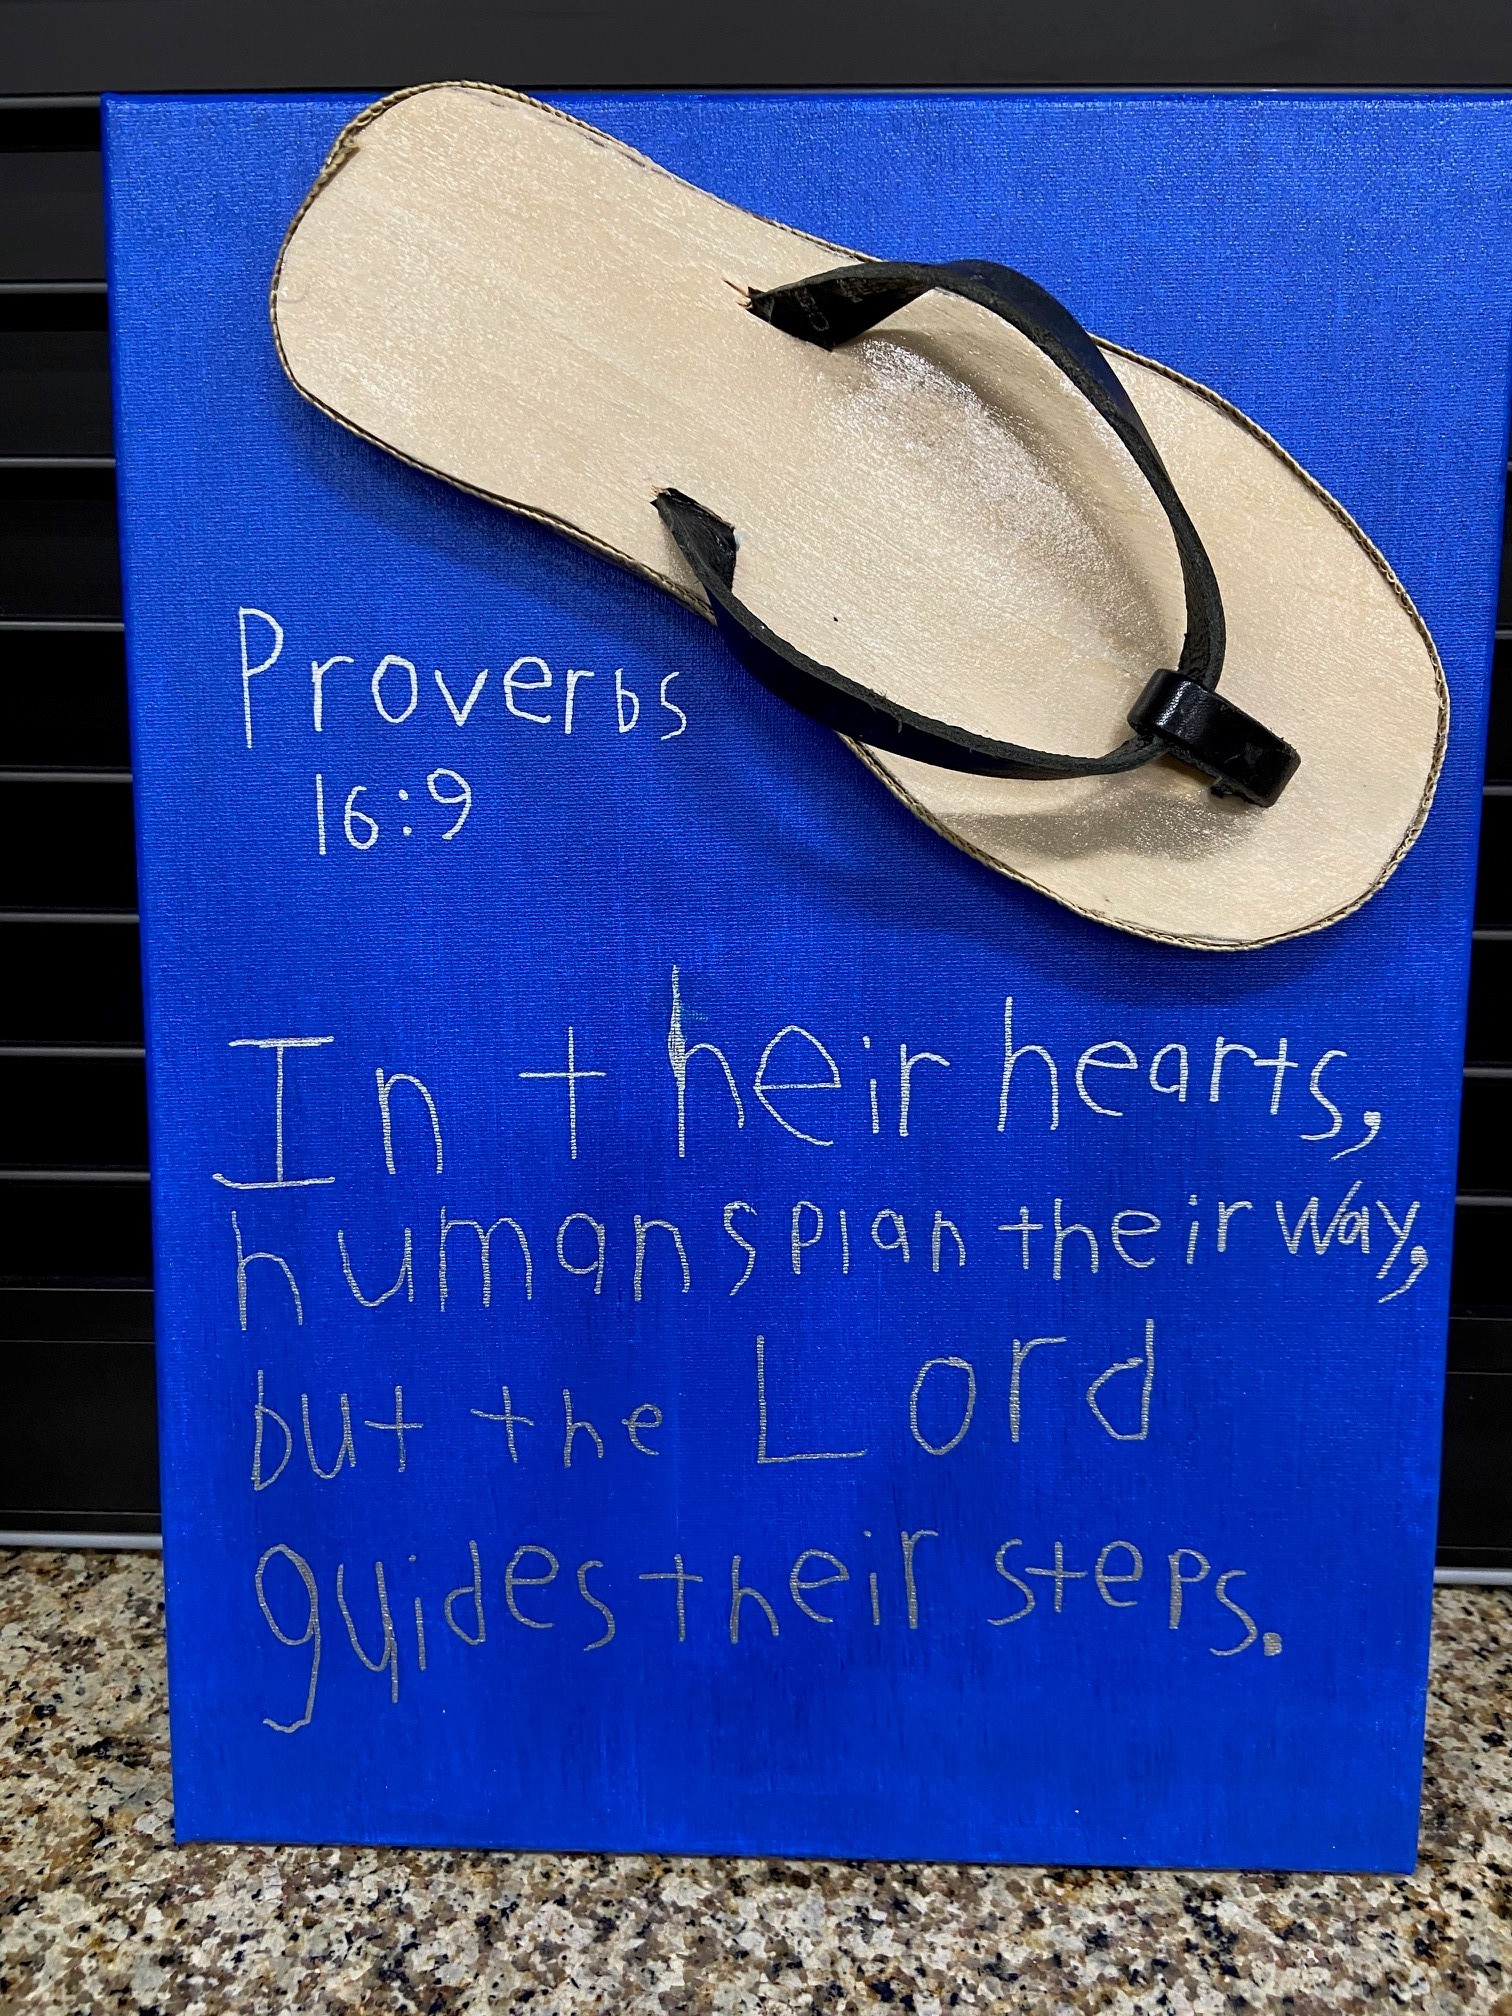 Proverbs
16:9
In their hearts,
humans plan their way,
but the Lord
guides their steps.